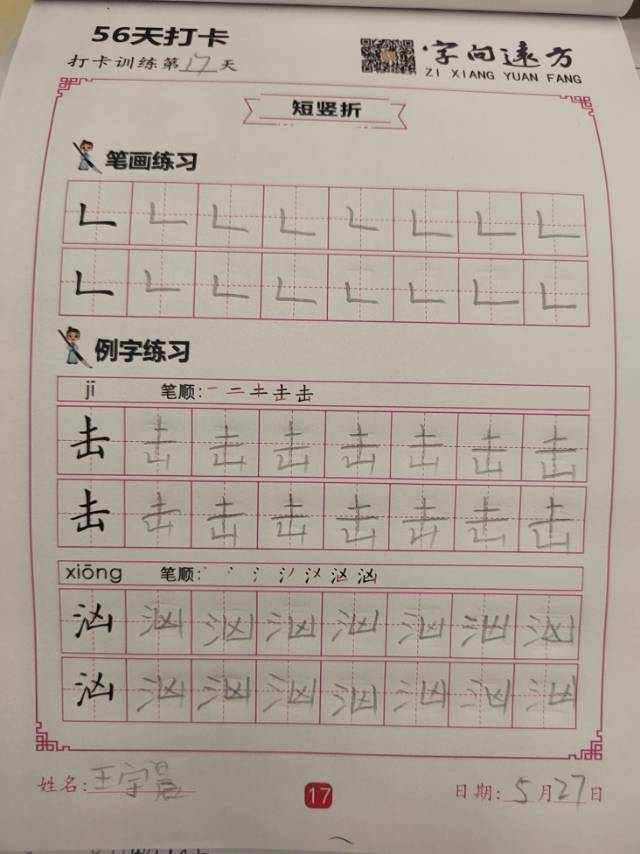 56天打卡
打卡训练第17天
字向远方
ZI XIANG YUAN FANG
短竖折
笔画练习
𠃊 𠃊 𠃊 𠃊 𠃊 𠃊 𠃊 𠃊
𠃊 𠃊 𠃊 𠃊 𠃊 𠃊 𠃊 𠃊
例字练习
jī 笔顺:一 二 キ 击 击
击 击 击 击 击 击 击 击
击 击 击 击 击 击 击 击
xiōng 笔顺:
汹 汹 汹 汹 汹 汹 汹 汹
汹 汹 汹 汹 汹 汹 汹 汹
姓名:王宇晨
17
日期:5月27日